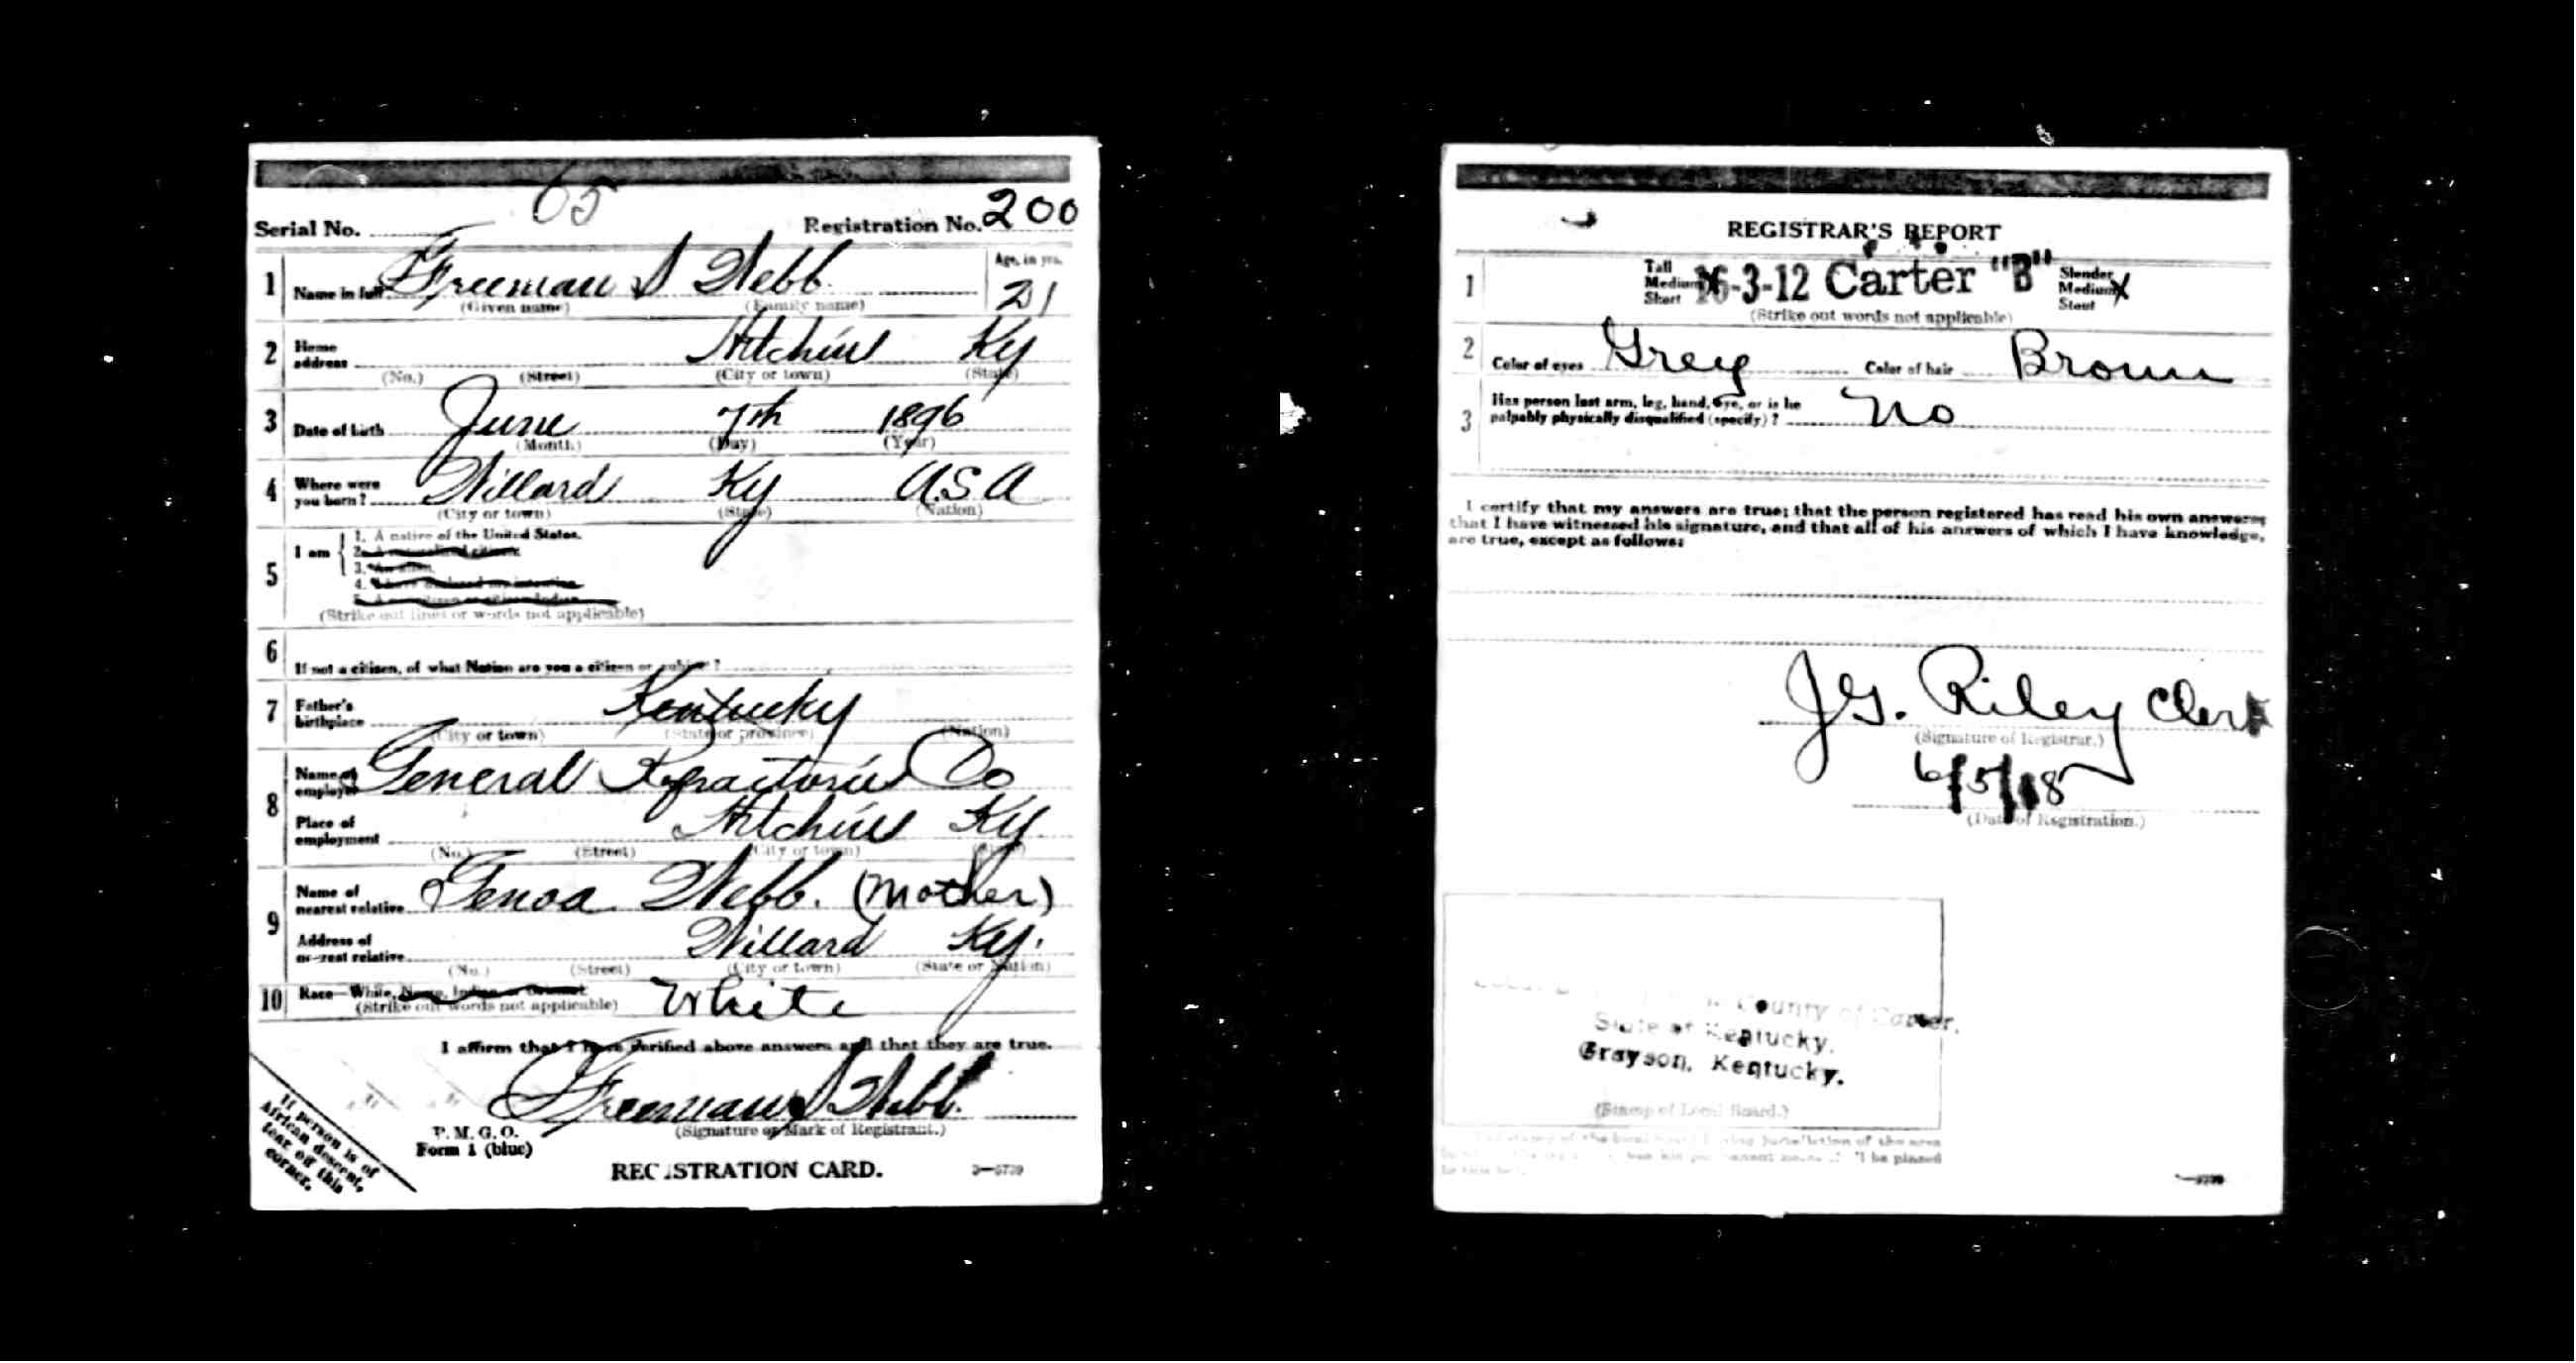 65
Serial No. Registration No. 200
1 Name in full Freeman S Webb Age, in yrs. 21
(Given name) (Family name)
2 Home address Hitchins Ky
(No.) (Street) (City or town) (State)
3 Date of birth June 7th 1896
(Month) (Day) (Year)
4 Where were you born? Willard Ky U.S.A
(City or town) (State) (Nation)
5 I am 1. A native of the United States.
2. A naturalized citizen.
3. An alien.
4.
5.
(Strike out lines or words not applicable)
6 If not a citizen, of what Nation are you a citizen or subject?
7 Father's birthplace Kentucky
(City or town) (State or province) (Nation)
8 Name of employer General Refractories Co
Place of employment Hitchins Ky
(No.) (Street) (City or town) (State)
9 Name of nearest relative Genoa Webb. (Mother)
Address of nearest relative Willard Ky.
(No.) (Street) (City or town) (State or Nation)
10 Race—White, Negro, Indian, or Oriental White
(Strike out words not applicable)
I affirm that I have verified above answers and that they are true.
Freeman S Webb.
(Signature or Mark of Registrant.)
P. M. G. O.
Form 1 (blue)
REGISTRATION CARD.
If person is of
African descent,
tear off this
corner.
REGISTRAR'S REPORT
1 Tall Medium Short 16-3-12 Carter "B" Slender Medium X Stout
(Strike out words not applicable)
2 Color of eyes Grey Color of hair Brown
3 Has person lost arm, leg, hand, eye, or is he
palpably physically disqualified (specify)? No
I certify that my answers are true; that the person registered has read his own answers;
that I have witnessed his signature, and that all of his answers of which I have knowledge,
are true, except as follows:
J.G. Riley Clerk
(Signature of Registrar.)
6/5/18
(Date of Registration.)
County of Carter,
State of Kentucky.
Grayson, Kentucky.
(Stamp of Local Board.)